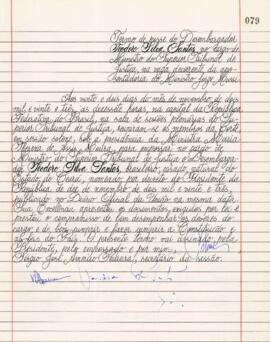 079
Termo de posse do Desembargador
Teodoro Silva Santos, no cargo de
Ministro do Superior Tribunal de
Justiça, na vaga decorrente da apo-
sentadoria do Ministro Jorge Mussi.
Aos vinte e dois dias do mês de novembro de dois
mil e vinte e três, às dezessete horas, na capital da República
Federativa do Brasil, na sala de sessões plenárias do Su-
perior Tribunal de Justiça, reuniram-se os membros da Corte,
em sessão solene, sob a presidência da Ministra Maria
Thereza de Assis Moura, para empossar, no cargo de
Ministro do Superior Tribunal de Justiça o Desembarga-
dor Teodoro Silva Santos, brasileiro, natural do
Estado do Ceará, nomeado por decreto do Presidente da
República de de novembro de dois mil e vinte e três,
publicado no Diário Oficial da União na mesma data.
Sua Excelência apresentou os documentos exigidos por lei e
prestou o compromisso de bem desempenhar os deveres do
cargo e de bem cumprir e fazer cumprir a Constituição e
as leis do País. O presente termo vai assinado pela
Presidente, pelo empossado e por mim,
Sérgio José Americo Pedreira, secretário da sessão.